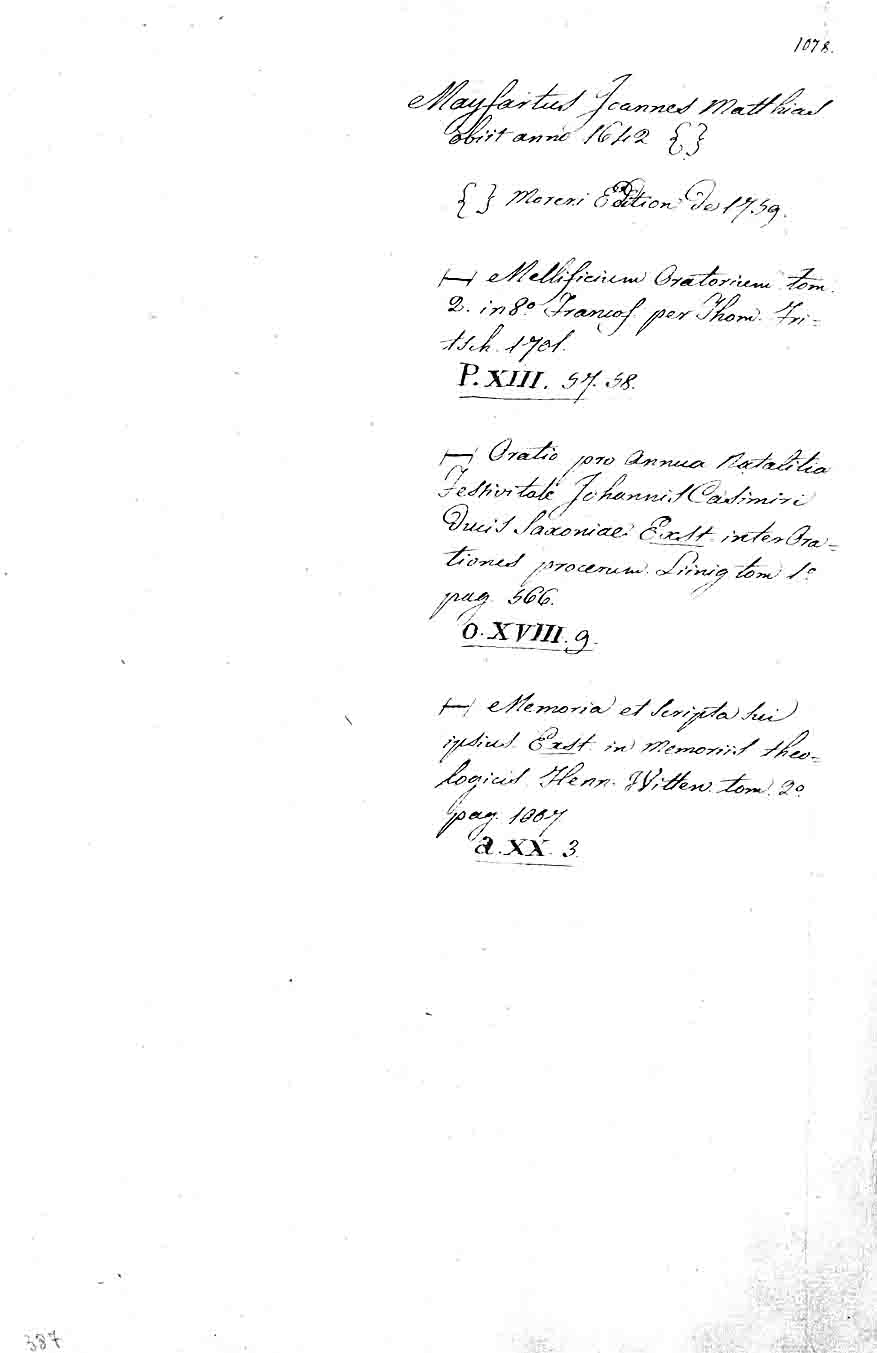 1078.
Mayfartus Joannes Matthias
obiit anno 1642 { }
{ } Moreri Edition de 1759.
|—| Mellificium Oratorium tom.
2. in 8º Francof. per Thom. Fri=
tsch. 1701.
P. XIII. 57. 58.
|—| Oratio pro Annua Natalitia
Festivitate Johannis Casimiri
Ducis Saxoniae. Exst. inter Ora=
tiones procerum. Lünig tom 1º
pag. 566.
O. XVIII. 9.
|—| Memoria et Scripta sui
ipsius. Exst. in Memoriis theo=
logicis Henn. Witten. tom. 2º.
pag. 1007
a. XX. 3.
387